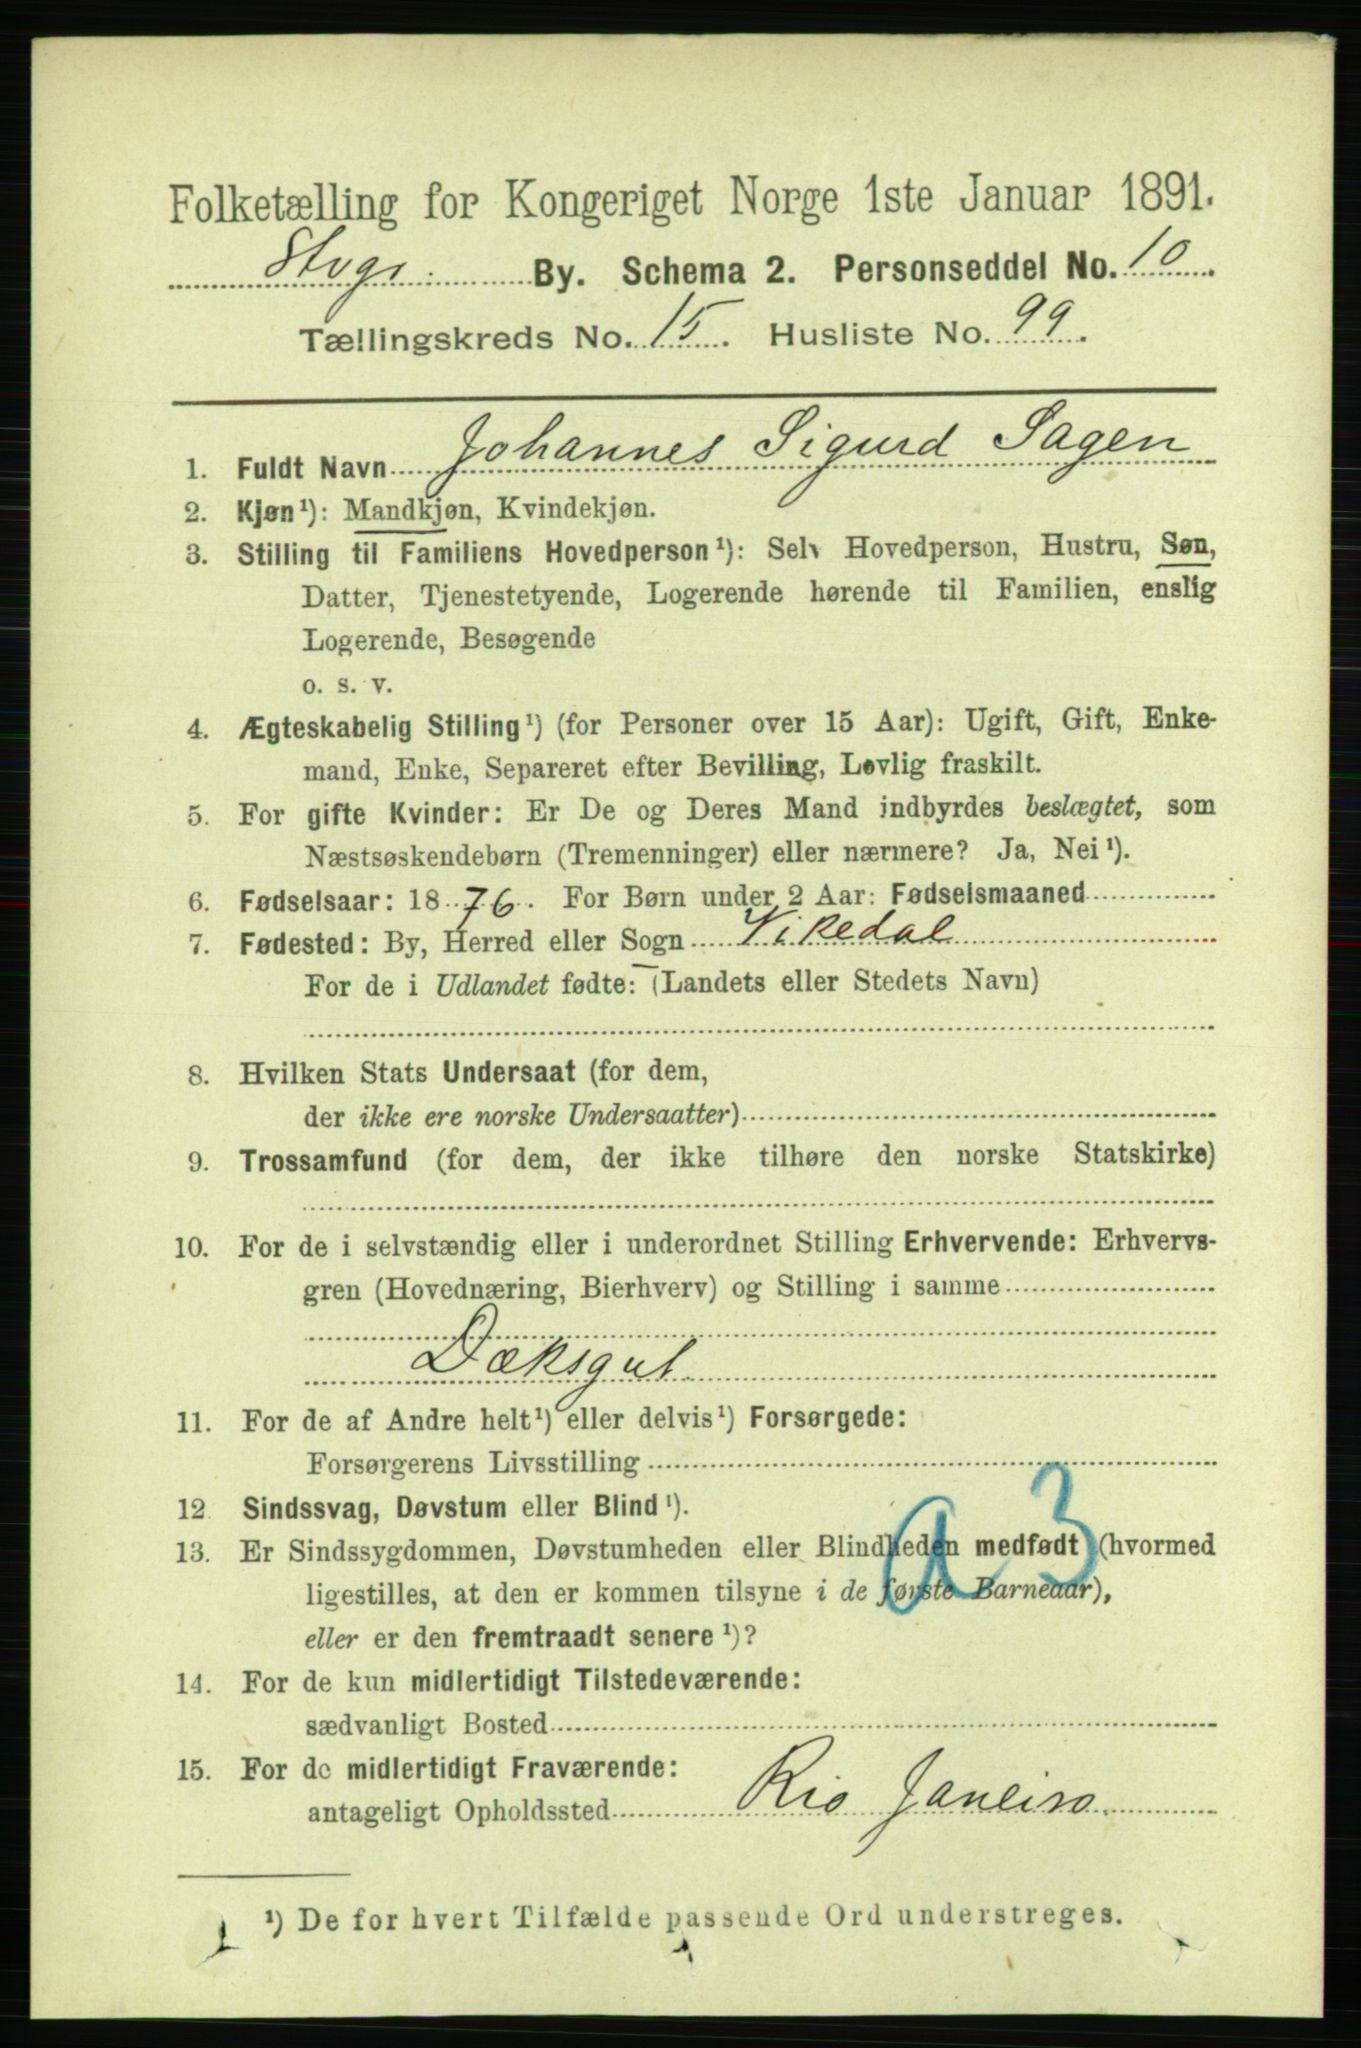 Folketælling for Kongeriget Norge 1ste Januar 1891.
By. Schema 2. Personseddel No. 10
Tællingskreds No. 15. Husliste No. 99.
1. Fuldt Navn Johannes Sigurd Sagen
2. Kjøn¹): Mandkjøn, Kvindekjøn.
3. Stilling til Familiens Hovedperson¹): Selv Hovedperson, Hustru, Søn,
Datter, Tjenestetyende, Logerende hørende til Familien, enslig
Logerende, Besøgende
o. s. v.
4. Ægteskabelig Stilling¹) (for Personer over 15 Aar): Ugift, Gift, Enke-
mand, Enke, Separeret efter Bevilling, Lovlig fraskilt.
5. For gifte Kvinder: Er De og Deres Mand indbyrdes beslægtet, som
Næstsøskendebørn (Tremenninger) eller nærmere? Ja, Nei¹).
6. Fødselsaar: 1876. For Børn under 2 Aar: Fødselsmaaned
7. Fødested: By, Herred eller Sogn Vikedal
For de i Udlandet fødte: (Landets eller Stedets Navn)
8. Hvilken Stats Undersaat (for dem,
der ikke ere norske Undersaatter)
9. Trossamfund (for dem, der ikke tilhøre den norske Statskirke)
10. For de i selvstændig eller i underordnet Stilling Erhvervende: Erhvervs-
gren (Hovednæring, Bierhverv) og Stilling i samme
Dæksgut
11. For de af Andre helt¹) eller delvis¹) Forsørgede:
Forsørgerens Livsstilling
12. Sindssvag, Døvstum eller Blind¹).
a 3
13. Er Sindssygdommen, Døvstumheden eller Blindheden medfødt (hvormed
ligestilles, at den er kommen tilsyne i de første Barneaar),
eller er den fremtraadt senere¹)?
14. For de kun midlertidigt Tilstedeværende:
sædvanligt Bosted
15. For de midlertidigt Fraværende:
antageligt Opholdssted Rio Janeiro
¹) De for hvert Tilfælde passende Ord understreges.